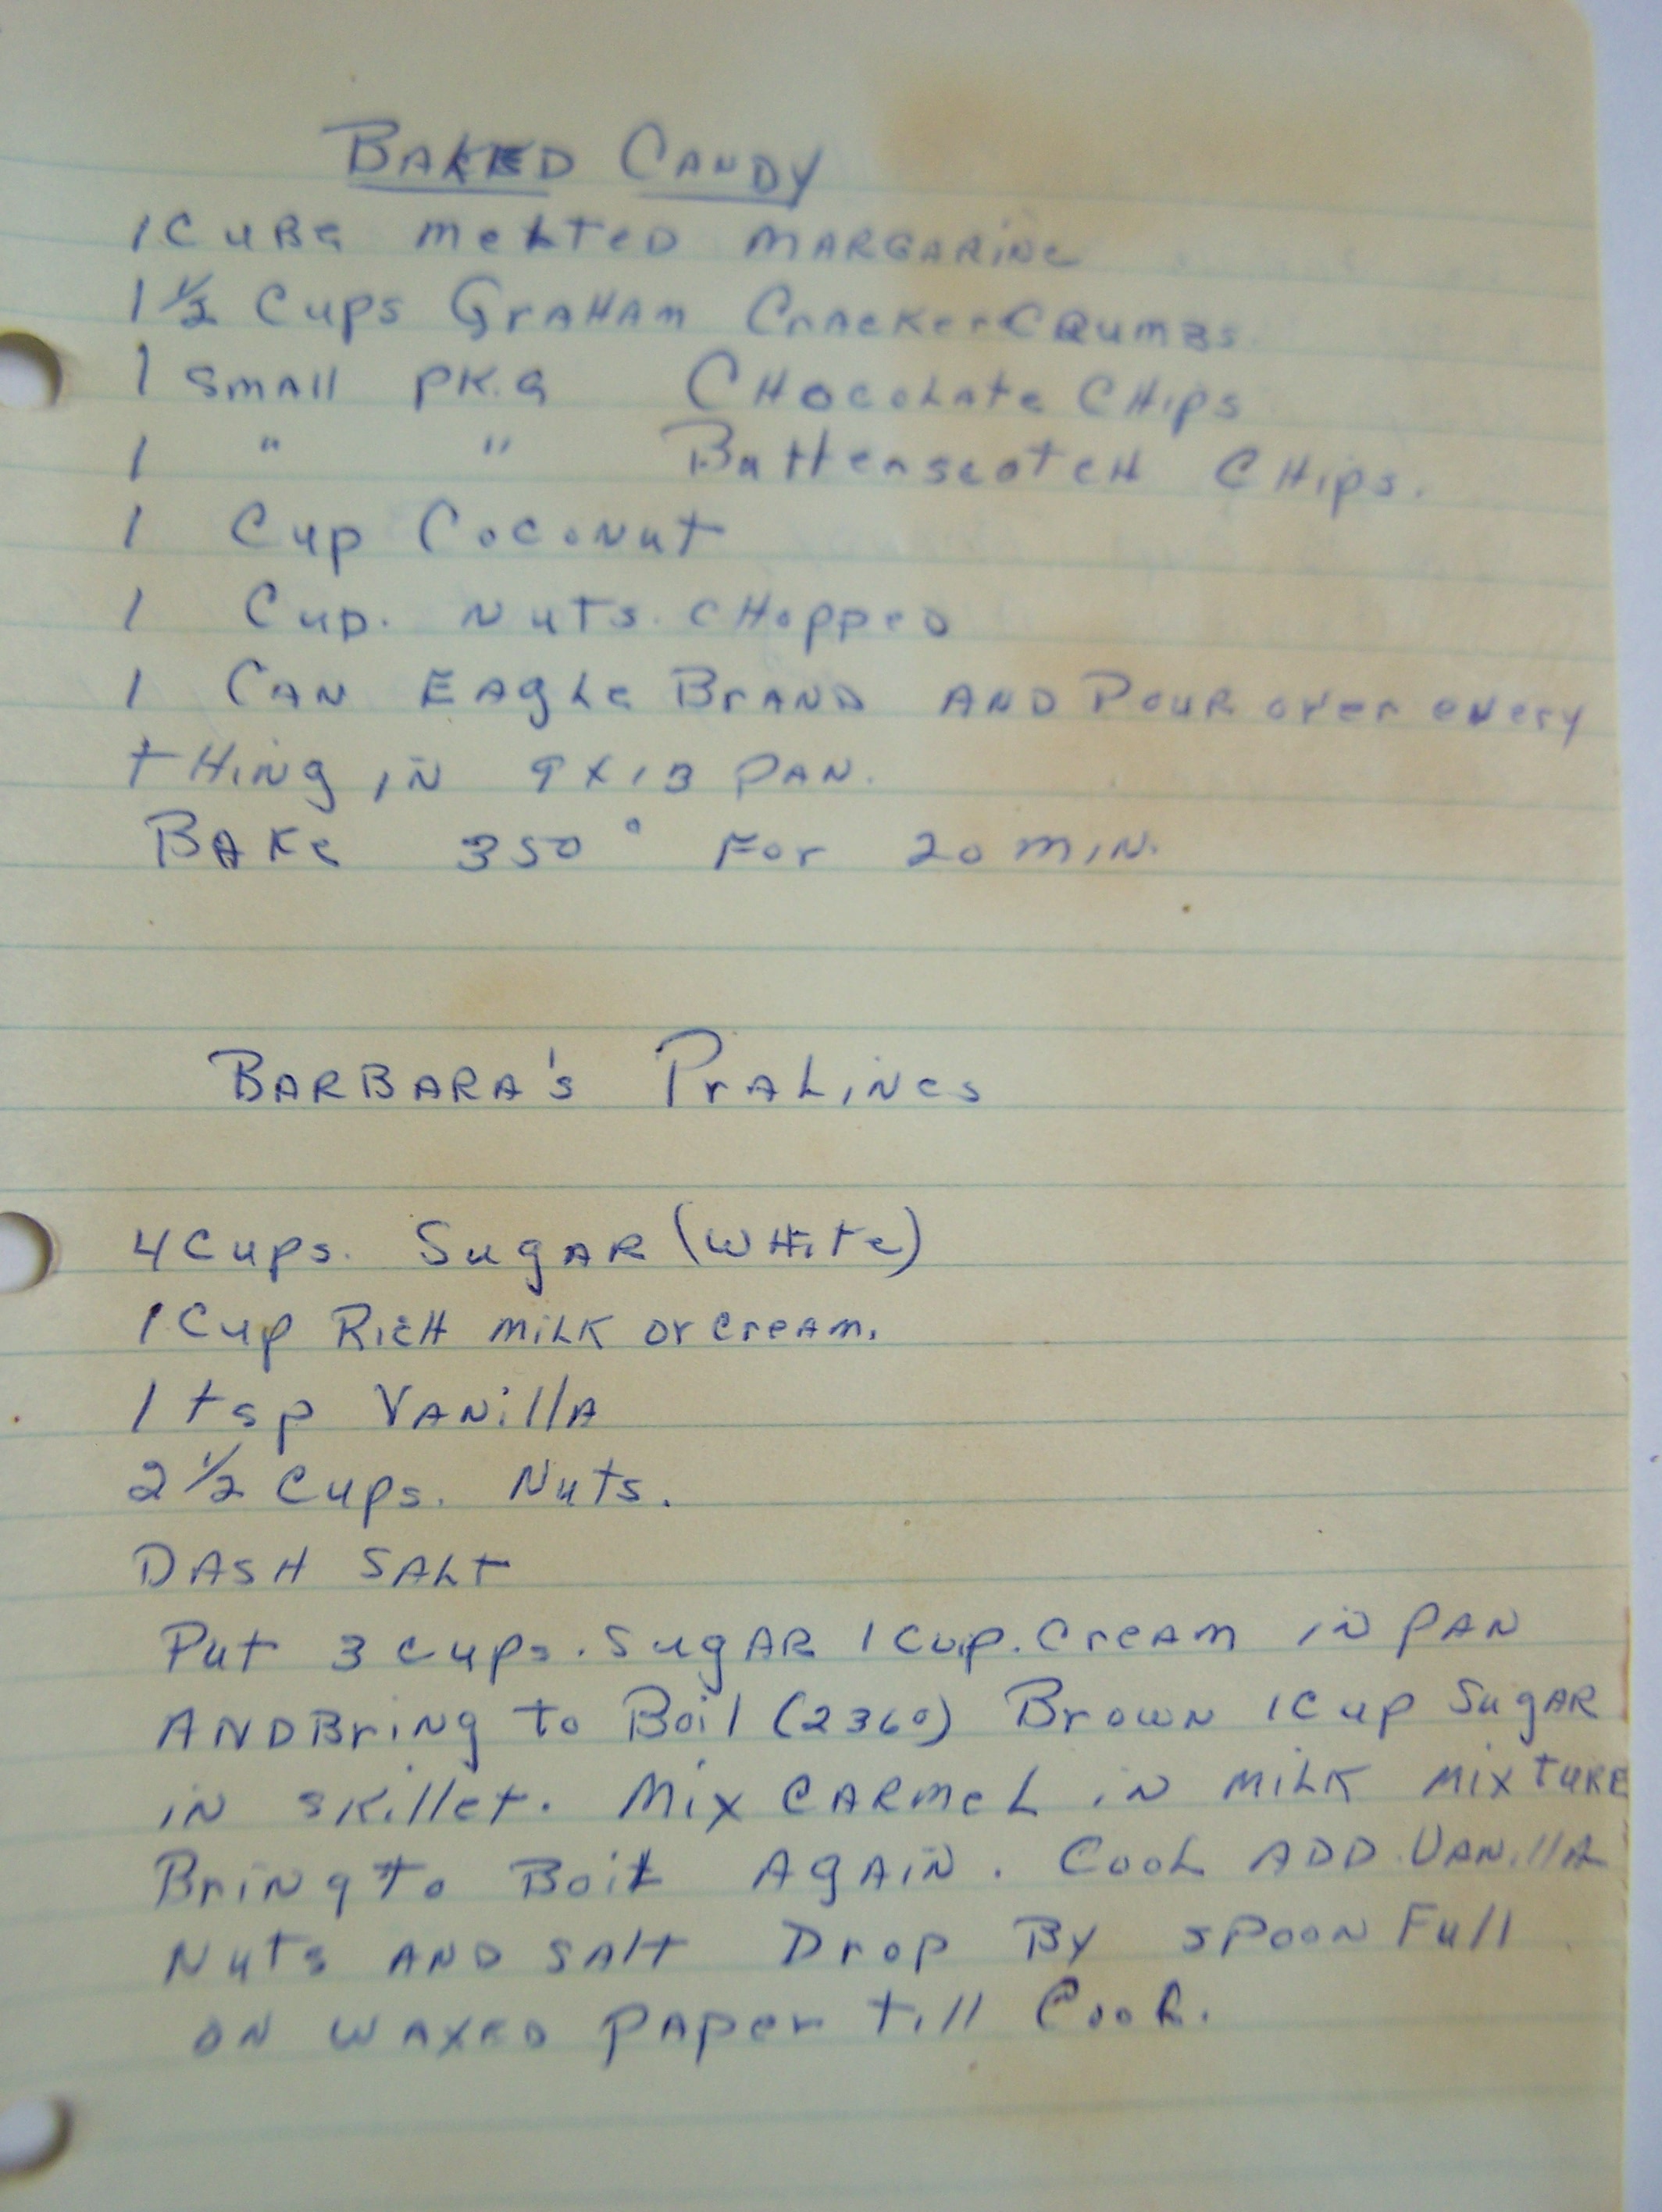 BAKED CANDY
1 CUBE MELTED MARGARINE
1 1/2 Cups GRAHAM CRACKER CRUMBS.
1 SMALL PK.G CHOCOLATE CHIPS
1 " " BUTTERSCOTCH CHIPS.
1 Cup COCONUT
1 Cup. NUTS. CHOPPED
1 CAN EAGLE BRAND AND POUR OVER EVERY
THING IN 9 X 13 PAN.
BAKE 350° FOR 20 MIN.
BARBARA'S PRALINES
4 Cups. SUGAR (WHITE)
1 Cup RICH MILK OR CREAM.
1 tsp VANILLA
2 1/2 Cups. NUTS.
DASH SALT
PUT 3 Cups. SUGAR 1 Cup. CREAM IN PAN
AND BRING TO BOIL (236°) BROWN 1 Cup SUGAR
IN SKILLET. MIX CARMEL IN MILK MIXTURE
BRING TO BOIL AGAIN. COOL ADD VANILLA
NUTS AND SALT DROP BY SPOON FULL
ON WAXED PAPER TILL COOL.